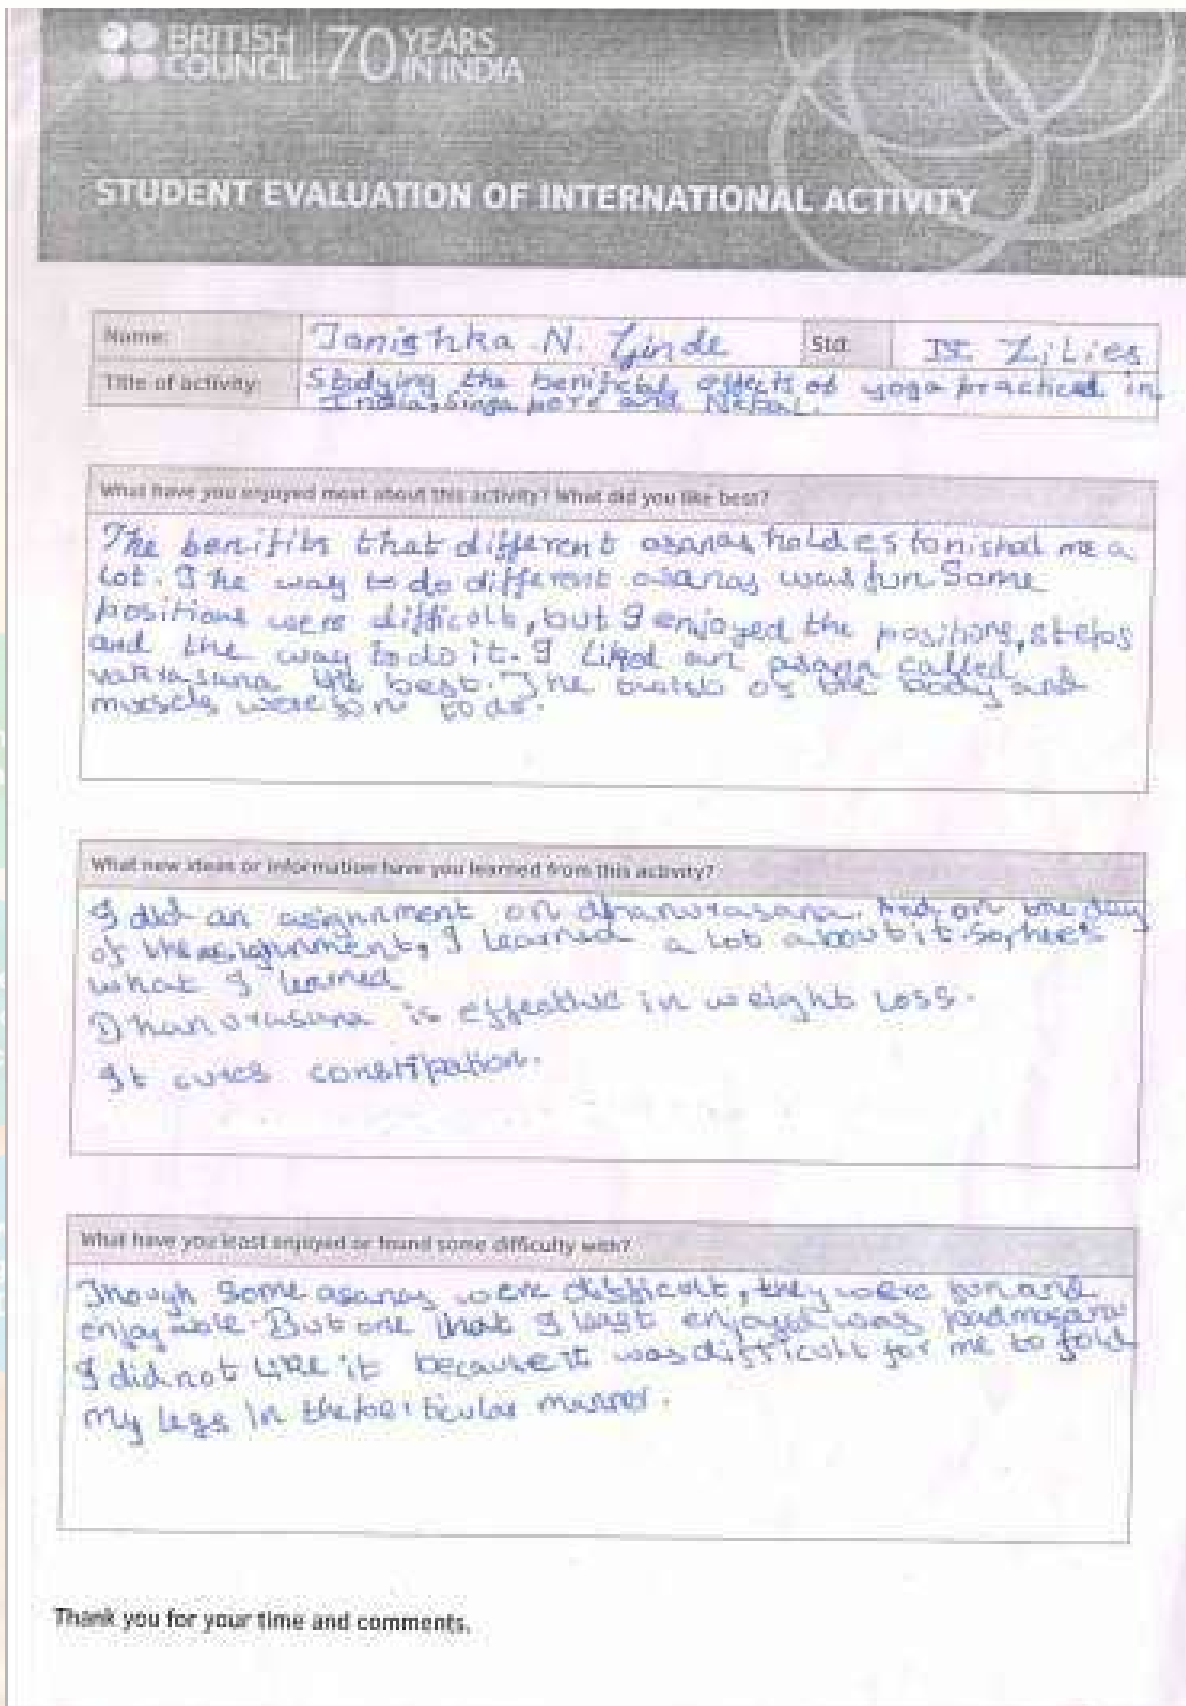 BRITISH COUNCIL
70 YEARS IN INDIA
STUDENT EVALUATION OF INTERNATIONAL ACTIVITY
Name: Tanishka N. Ginde Std:
Title of activity: Studying the benificial effects of yoga practiced in
India, Singapore and Nepal.
What have you enjoyed most about this activity? What did you like best?
The benifits that different asanas hold estonished me a
lot. The way to do different asanas was fun. Some
positions were difficult, but I enjoyed the positions, steps
and the way to do it. I liked an asana called
vakrasana the best. The twists of the body and
muscles were fun to do.
What new ideas or information have you learned from this activity?
I did an asignment on dhanurasana. And, on the day
of the asignment, I learned a lot about it. So, here's
what I learned
Dhanurasana is effective in weight loss.
It cures constipation.
What have you least enjoyed or found some difficulty with?
Though some asanas were difficult, they were fun and
enjoyable. But one that I least enjoyed was padmasana
I did not like it because it was difficult for me to fold
my legs in the perticular manner.
Thank you for your time and comments.